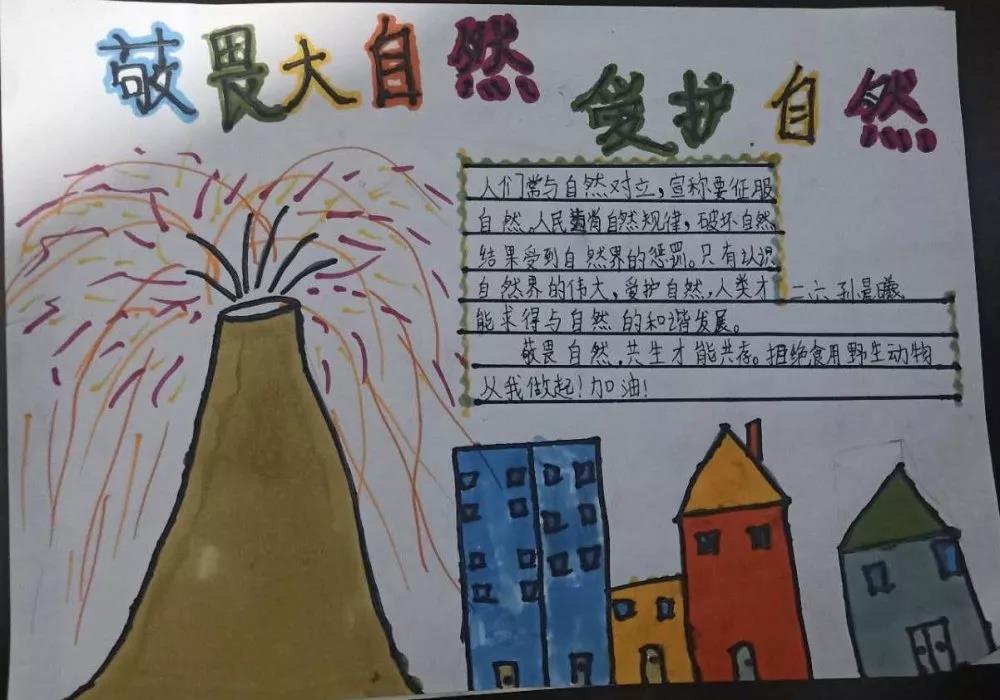 敬畏大自然
爱护自然
人们常与自然对立，宣称要征服
自然。人民違背自然规律，破坏自然
结果受到自然界的惩罚。只有认识
自然界的伟大，爱护自然，人类才
二六 孙晨曦
能求得与自然的和谐发展。
敬畏自然，共生才能共存。拒绝食用野生动物
从我做起！加油！